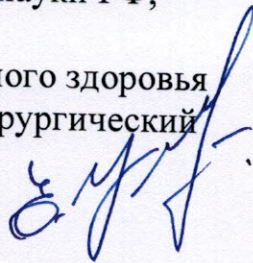 науки РФ,
ного здоровья
рургический